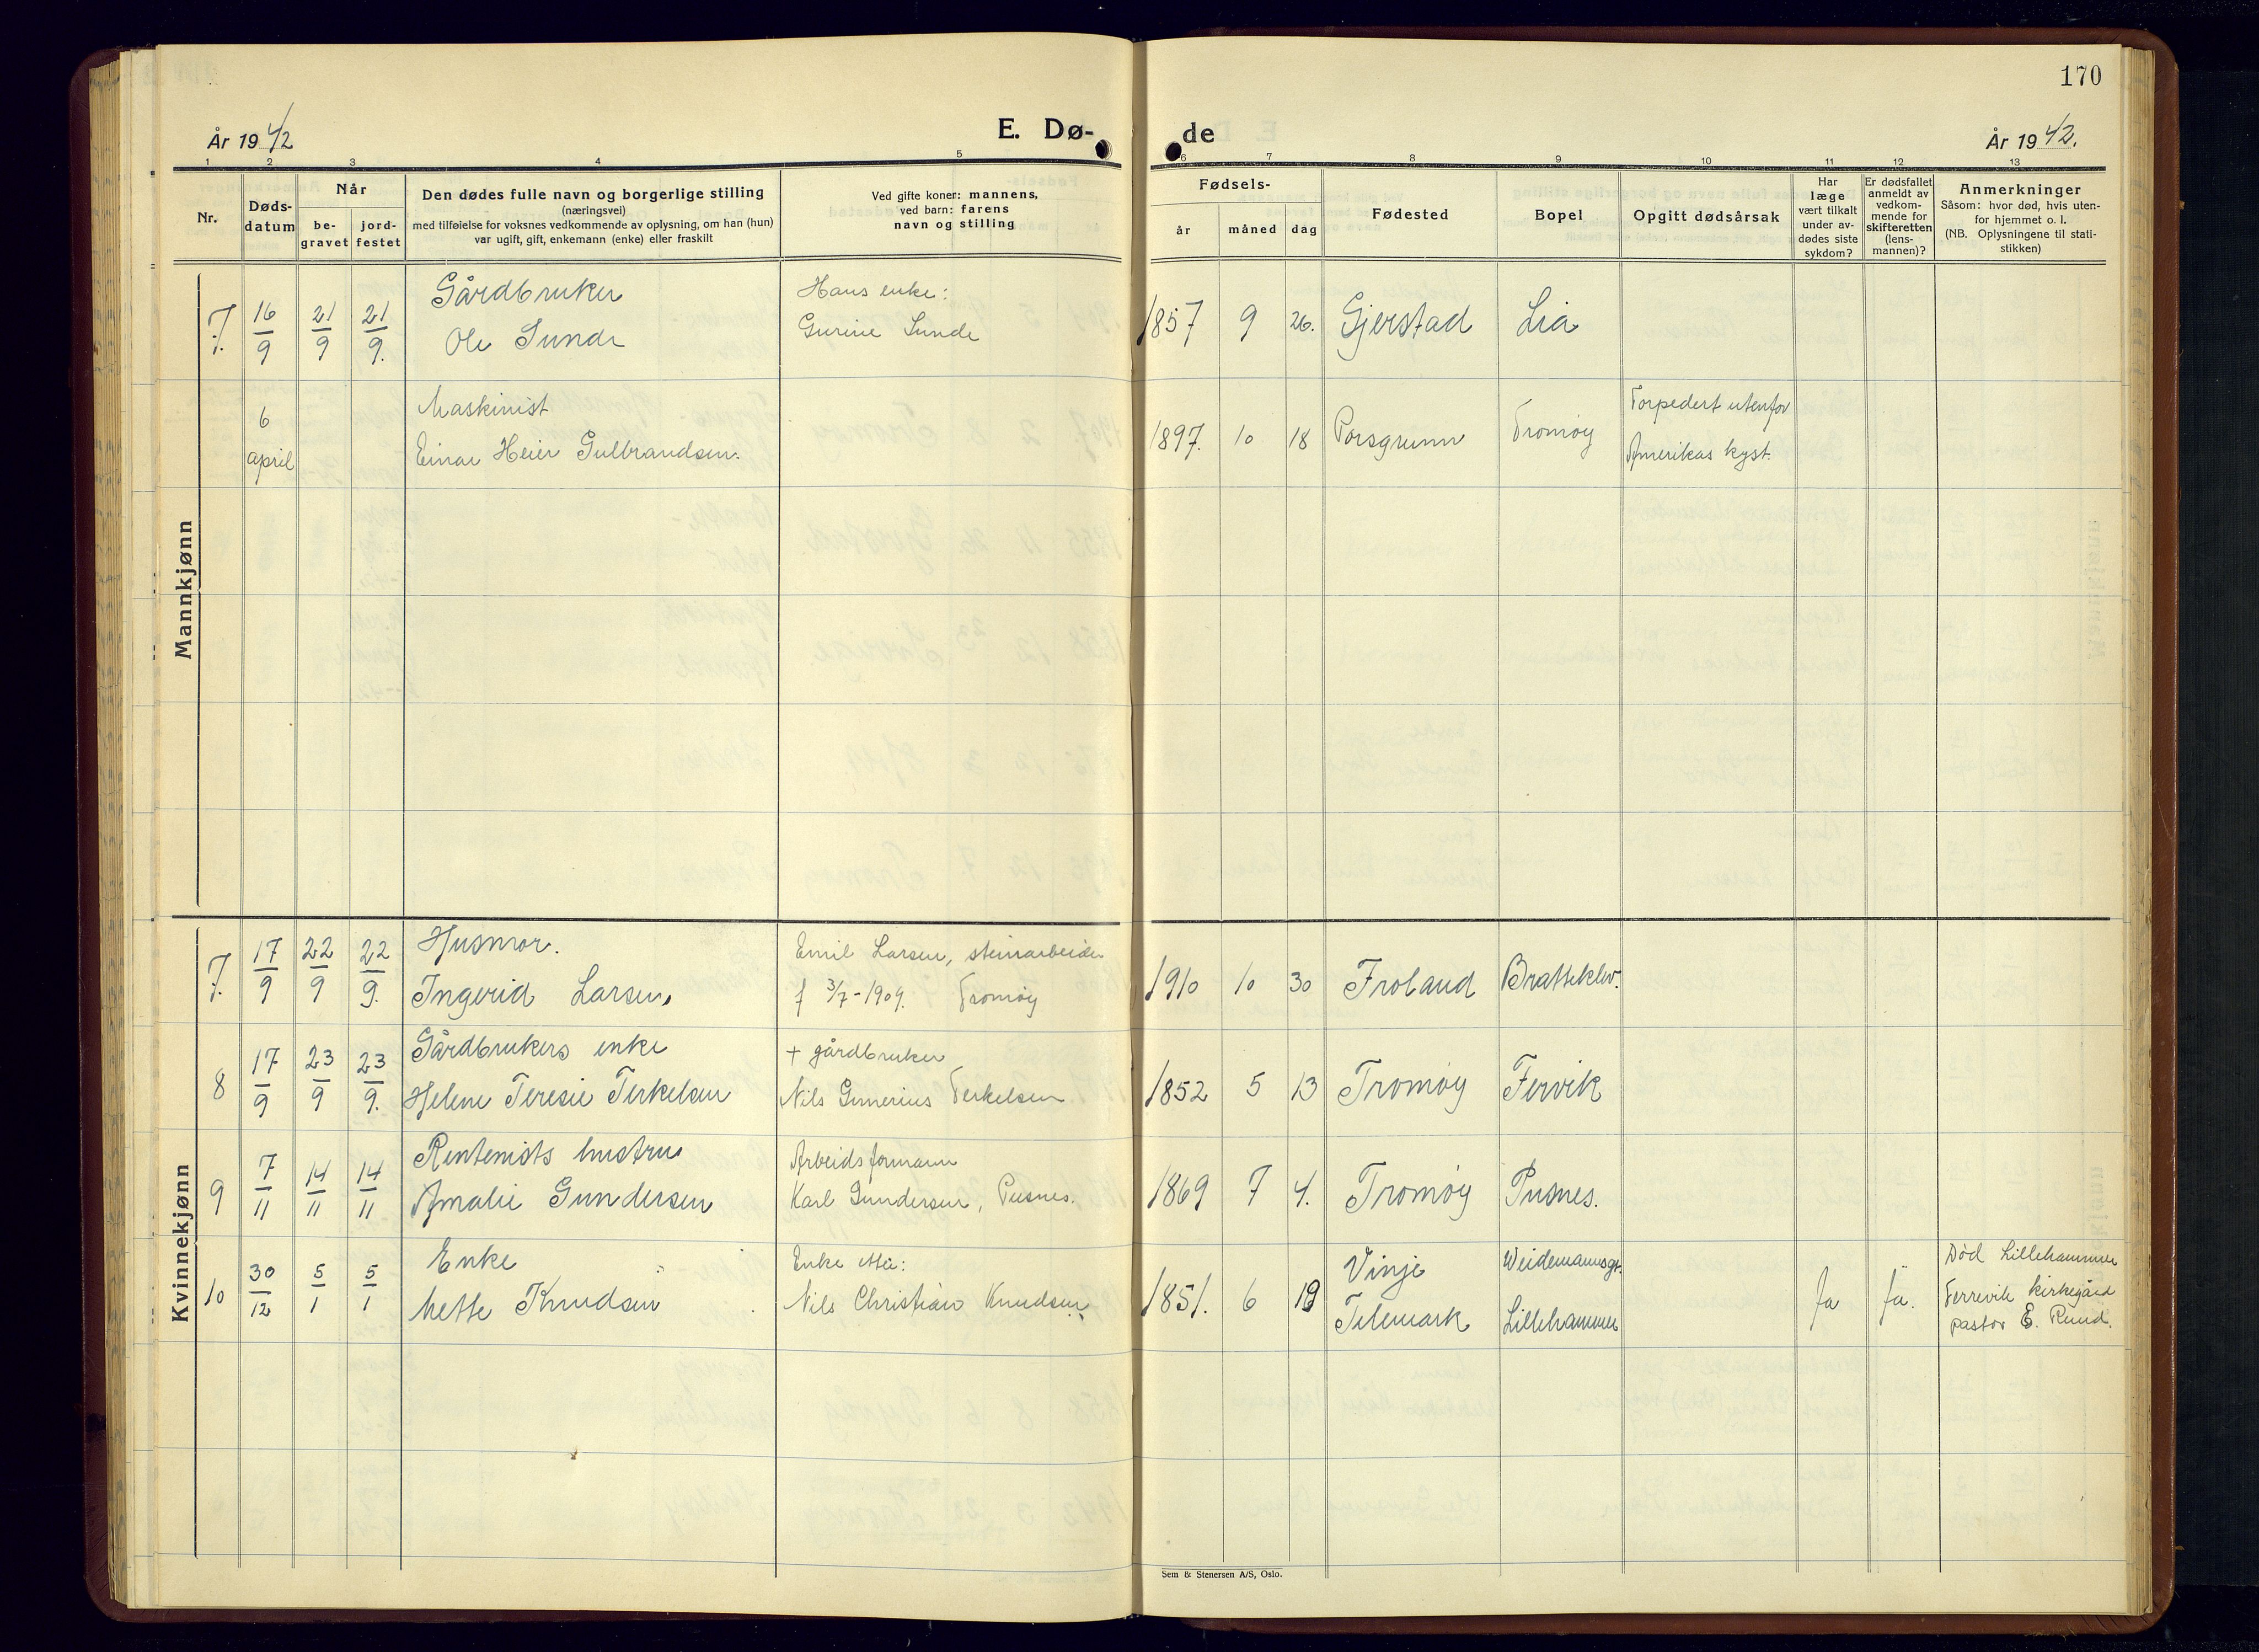 170
År 1942
E. Dø-
de
År 1942.
1 2 3 4 5 6 7 8 9 10 11 12 13
Nr.
Døds-
datum
Når
be-
gravet
jord-
festet
Den dødes fulle navn og borgerlige stilling
(næringsvei)
med tilføielse for voksnes vedkommende av oplysning, om han (hun)
var ugift, gift, enkemann (enke) eller fraskilt
Ved gifte koner: mannens,
ved barn: farens
navn og stilling
Fødsels-
år
måned
dag
Fødested
Bopel
Opgitt dødsårsak
Har
læge
vært tilkalt
under av-
dødes siste
sykdom?
Er dødsfallet
anmeldt av
vedkom-
mende for
skifteretten
(lens-
mannen)?
Anmerkninger
Såsom: hvor død, hvis uten-
for hjemmet o. l.
(NB. Oplysningene til stati-
stikken)
Mannkjønn
7. 16/9 21/9 21/9.
Gårdbruker
Ole Sunde
Hans enke:
Gurine Sunde
1857 9 26. Gjerstad Lia
6
april
Maskinist
Einar Heier Gulbrandsen.
1897. 10 18 Porsgrunn Tromøy
Torpedert utenfor
Amerikas kyst.
Kvinnekjønn
7. 17/9 22/9 22/9.
Husmor.
Ingerid Larsen,
Emil Larsen, steinarbeider
f 3/7-1909. Tromøy
1910 10 30 Froland Bratteklev.
8 17/9 23/9 23/9.
Gårdbrukers enke
Helene Teresie Terkelsen
+ gårdbruker
Nils Gunerius Terkelsen
1852 5 13 Tromøy Fervik
9 7/11 14/11 14/11
Rentenists hustru
Amalie Gundersen
Arbeidsformann
Karl Gundersen, Pusnes.
1869 7 4. Tromøy Pusnes.
10 30/12 5/1 5/1
Enke
Mette Knudsen
Enke etter:
Nils Christian Knudsen.
1851. 6 19
Vinje
Telemark
Weidemannsgt.
Lillehammer
Ja Ja.
Død Lillehammer
Ferrevik kirkegård
pastor E. Ruud.
Sem & Stenersen A/S, Oslo.